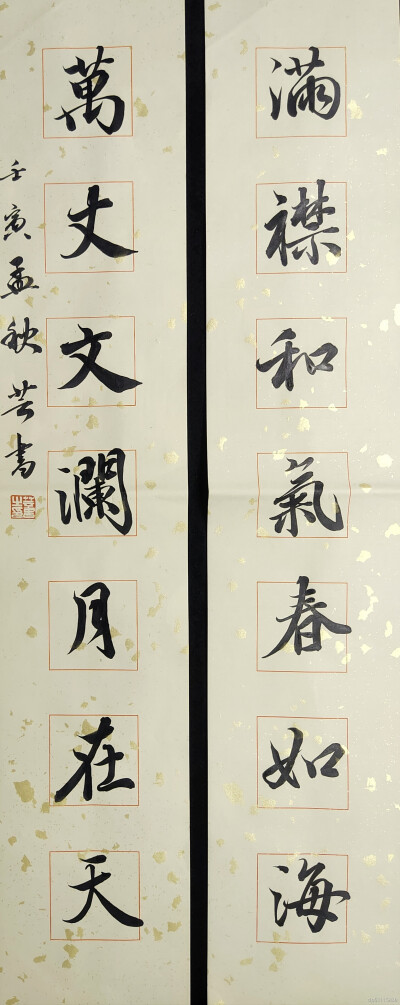 滿襟和氣春如海
萬丈文瀾月在天
壬寅孟秋芸書